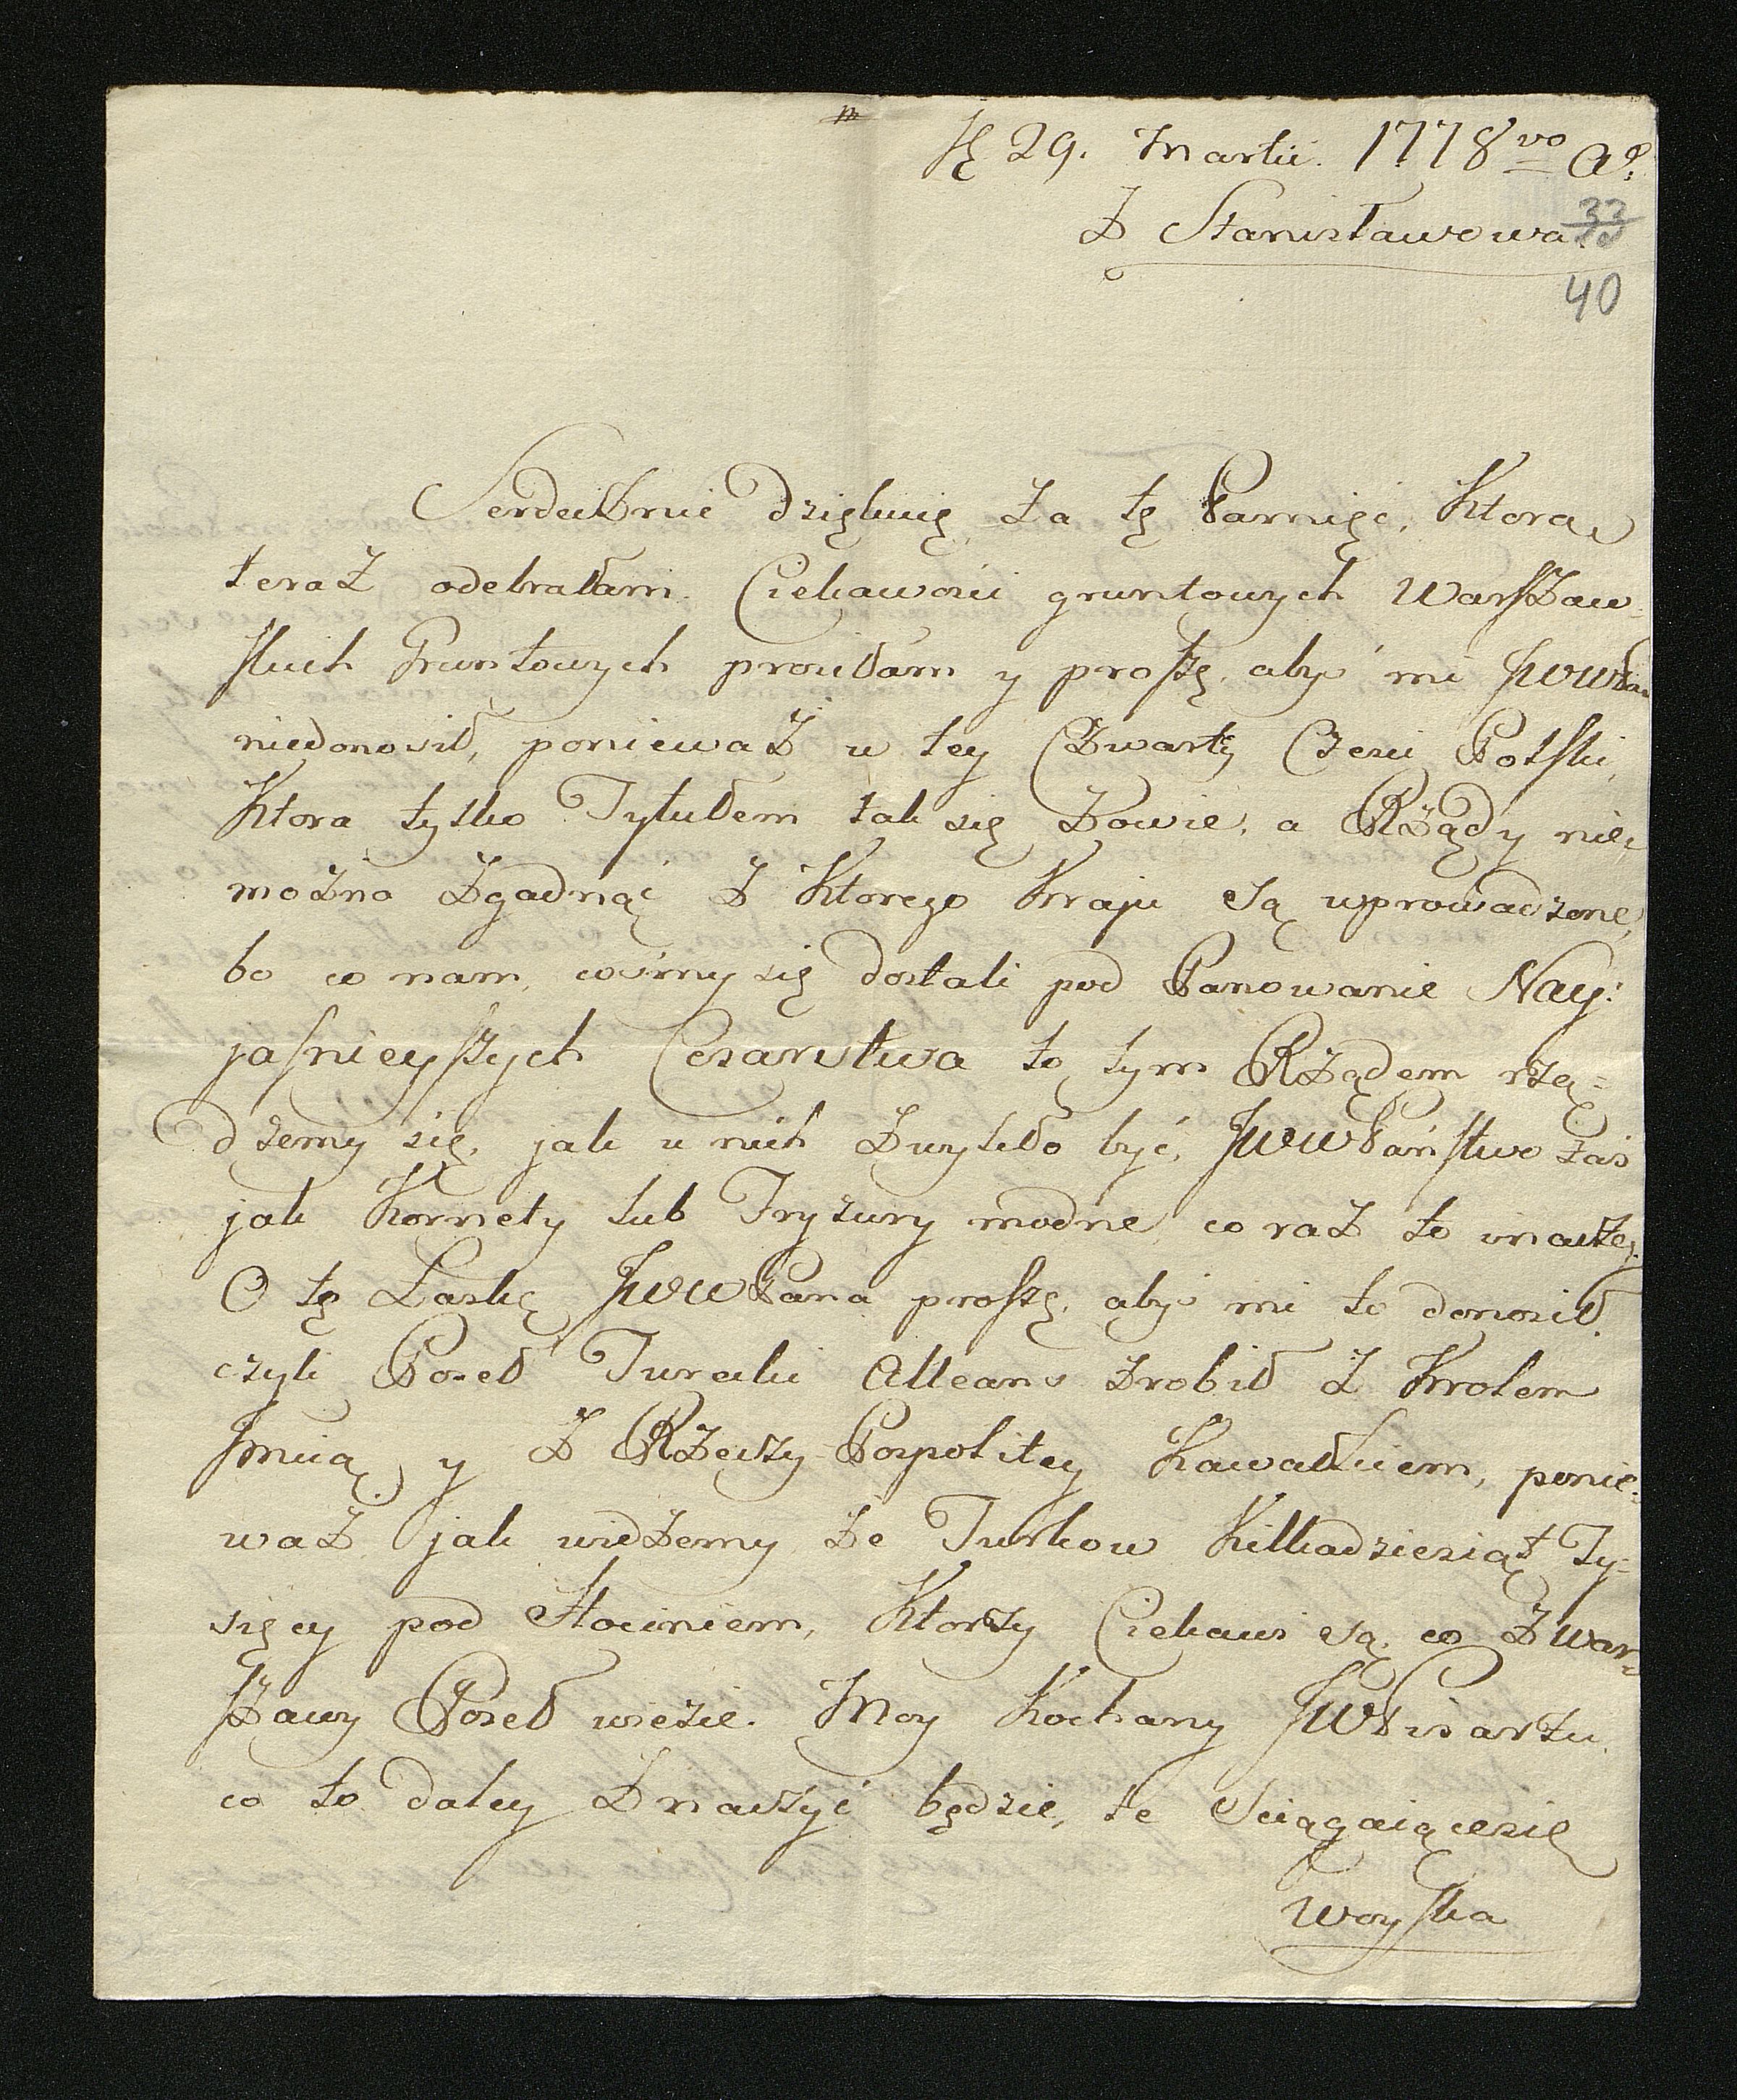 29. Martii. 1778vo Ao:
Z Stanisławowa.
33
40
Serdecznie dziękuię za tę Pamięć, ktora
teraz odebrałam. Ciekawości gruntowych Warszaw=
skich Gruntowych prosiłam y proszę, aby mi JWWPan
niedonosił, poniewaz w tey Czwartey Czesci Polski,
Ktora tylko Tytułem tak się Zowie, a RZądy nie=
mozna Zgadnąć Z Ktorego Kraju Są wprowadzone,
bo co nam, cośmy się dostali pod Panowanie Nay:
jasnieyszych Cesarstwa to tym RZądem rzą=
dzemy się, jak u nich Zwykło być, JWWPaństwo zaś
jak Kornety lub Fryzury modne, co raz to inaczey.
O tę Łaskę JWWPana proszę, aby mi to donosił,
czyli Poseł Turecki Alleans zrobił Z Krolem
Jmcią y Z RZeczy-Pospolitey Kawałkiem, ponie=
waz jak widzemy ze Turkow Kilkadziesiąt Ty=
sięcy pod Hocimem, Ktorzy Ciekawi są, co Z War=
szawy Poseł wiezie. Moy Kochany JWPisarzu
co to daley Znaczyć będzie, te Sciągaiącesię
Woyska